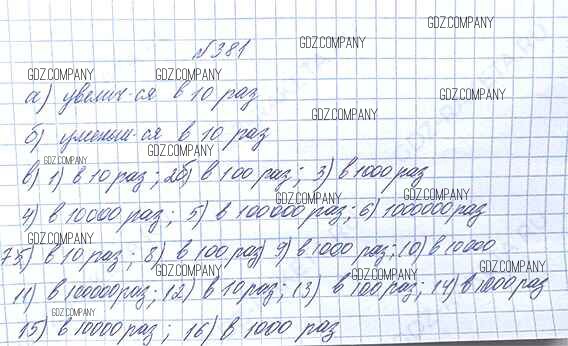 GDZ.COMPANY
№381
GDZ.COMPANY
GDZ.COMPANY GDZ.COMPANY
а) увелич-ся в 10 раз
GDZ.COMPANY
GDZ.COMPANY
б) уменьш-ся в 10 раз
GDZ.COMPANY
GDZ.COMPANY
в) 1) в 10 раз; 2б) в 100 раз; 3) в 1000 раз
GDZ.COMPANY GDZ.COMPANY
4) в 10000 раз; 5) в 100000 раз; 6) 1000000 раз
GDZ.COMPANY GDZ.COMPANY
7б) в 10 раз; 8) в 100 раз) 9) в 1000 раз; 10) в 10000
GDZ.COMPANY GDZ.COMPANY GDZ.COMPANY
11) в 100000 раз; 12) в 10 раз; 13) в 100 раз; 14) в 1000 раз
GDZ.COMPANY GDZ.COMPANY
15) в 10000 раз; 16) в 1000 раз